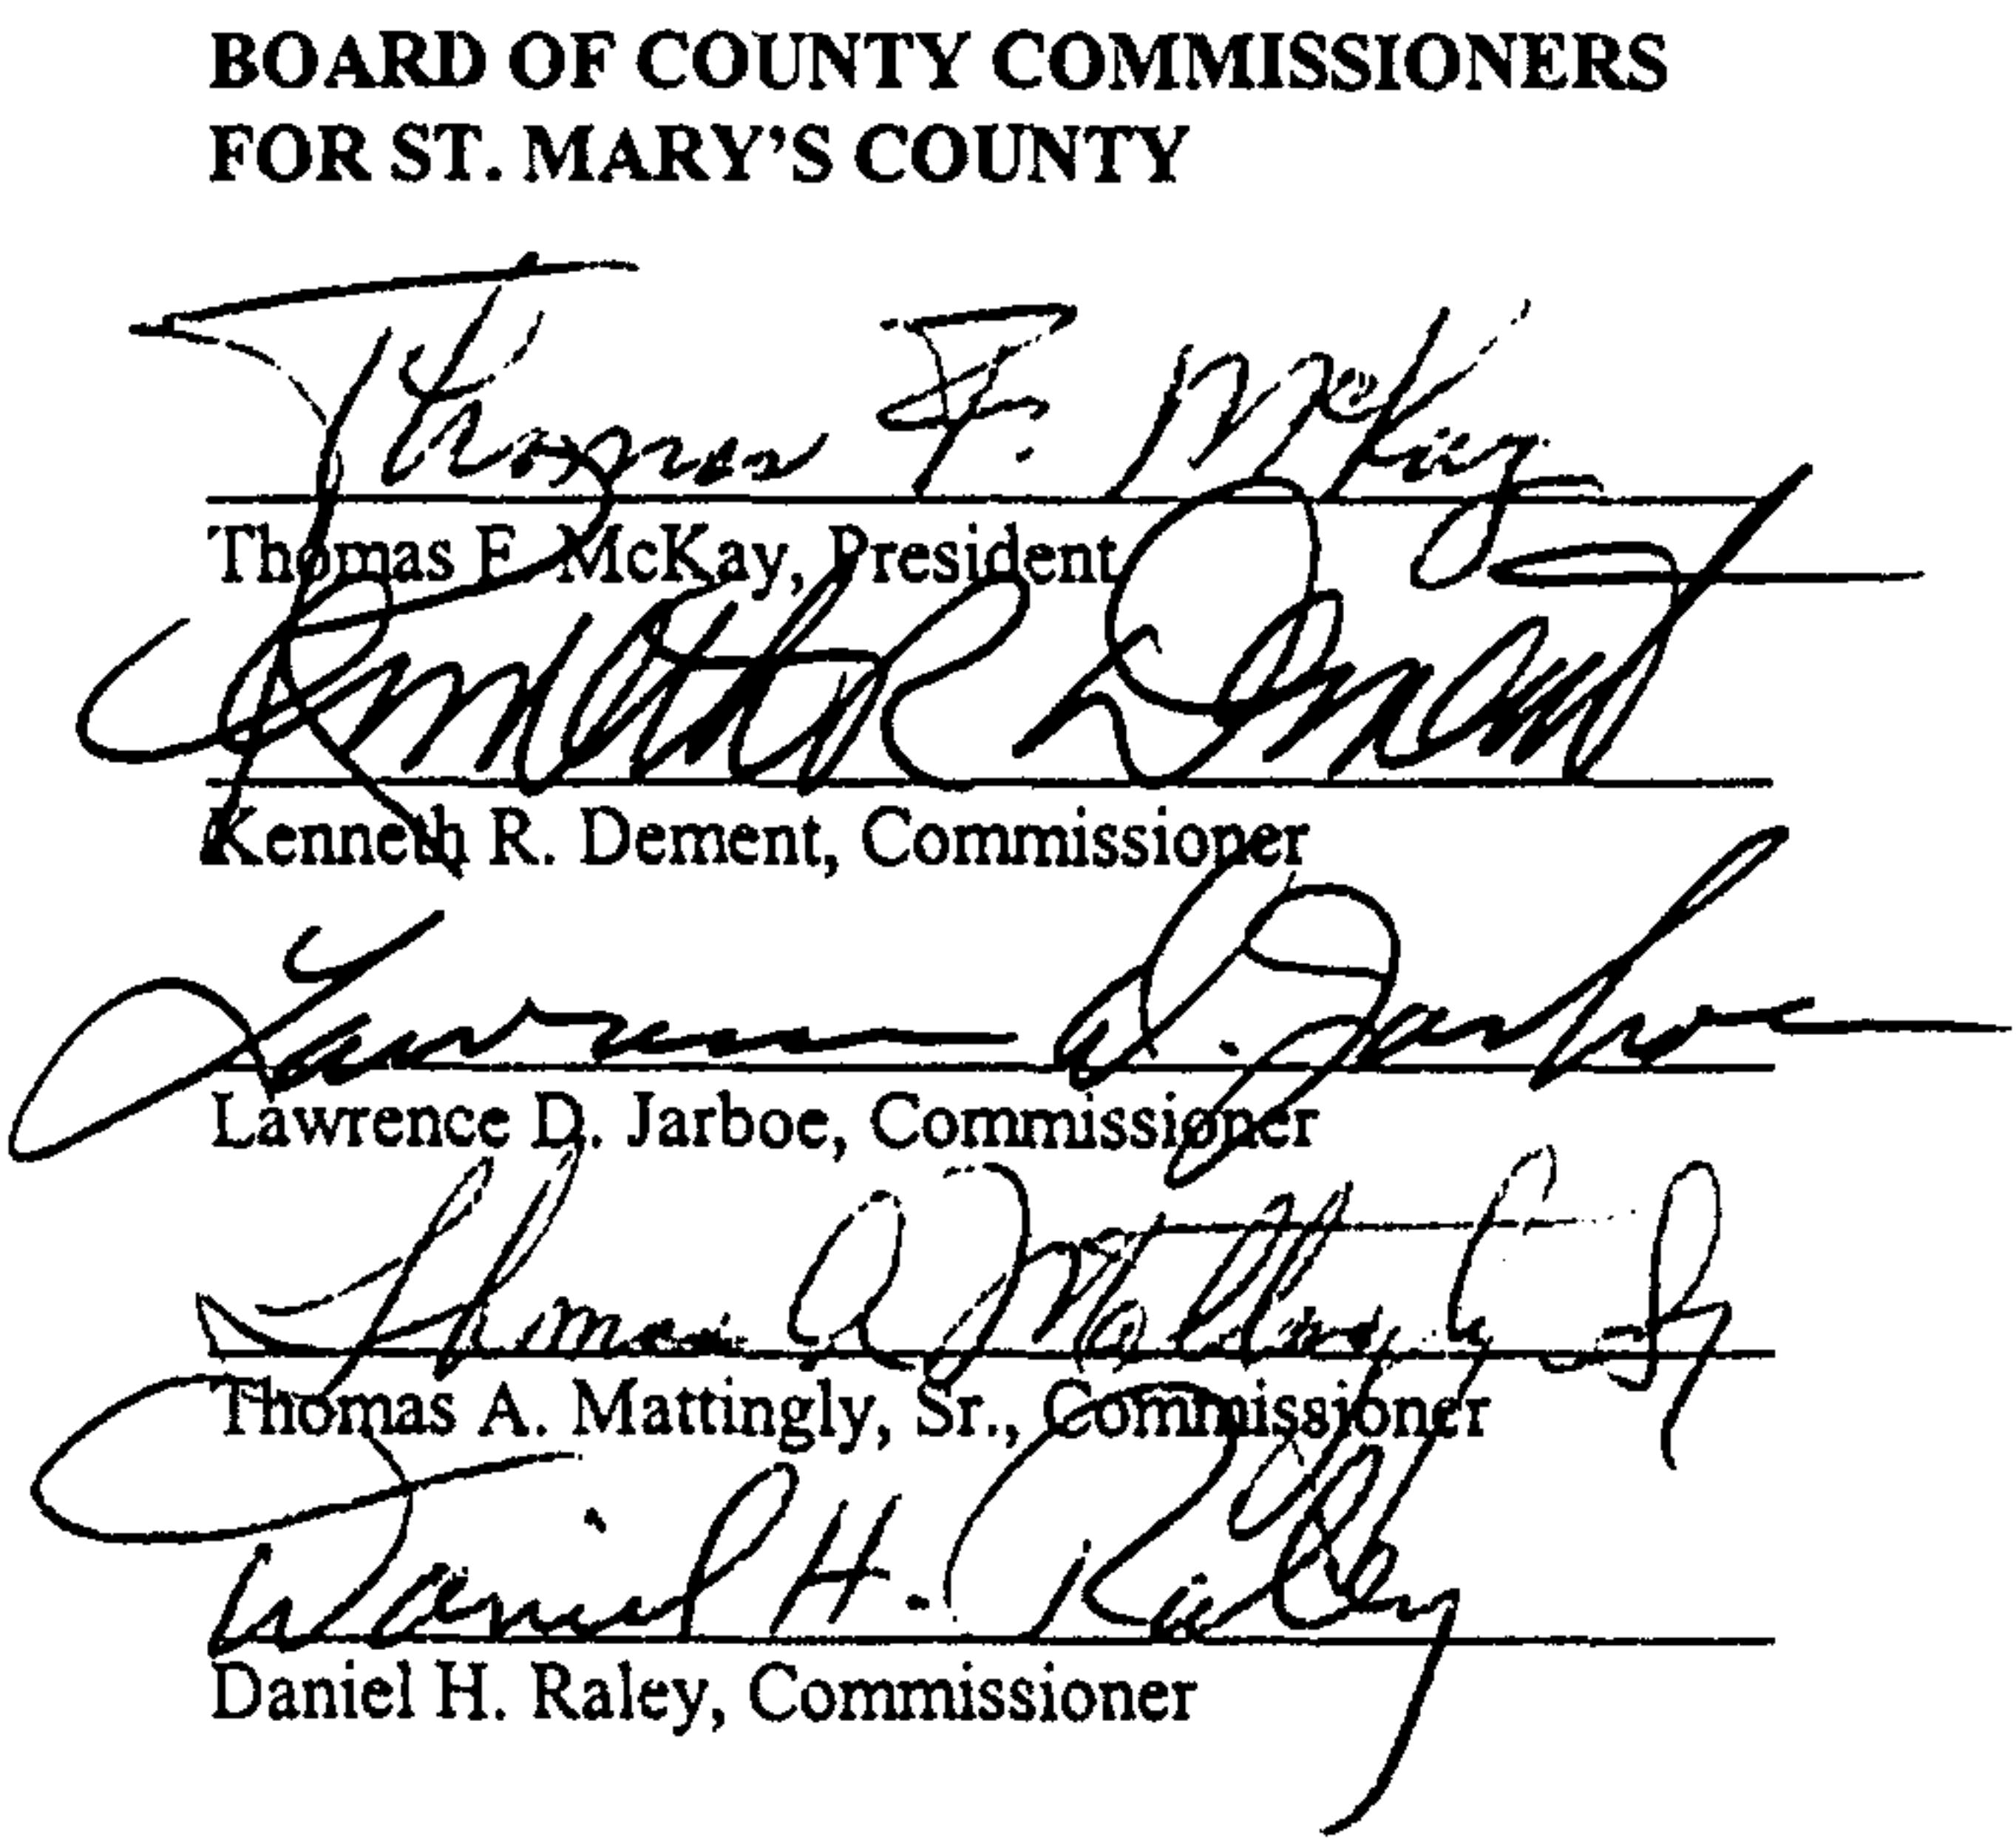 BOARD OF COUNTY COMMISSIONERS
FOR ST. MARY'S COUNTY
Thomas F. McKay
Thomas F. McKay, President
Kenneth R Dement
Kenneth R. Dement, Commissioner
Lawrence D. Jarboe
Lawrence D. Jarboe, Commissioner
Thomas A Mattingly Sr
Thomas A. Mattingly, Sr., Commissioner
Daniel H. Raley
Daniel H. Raley, Commissioner